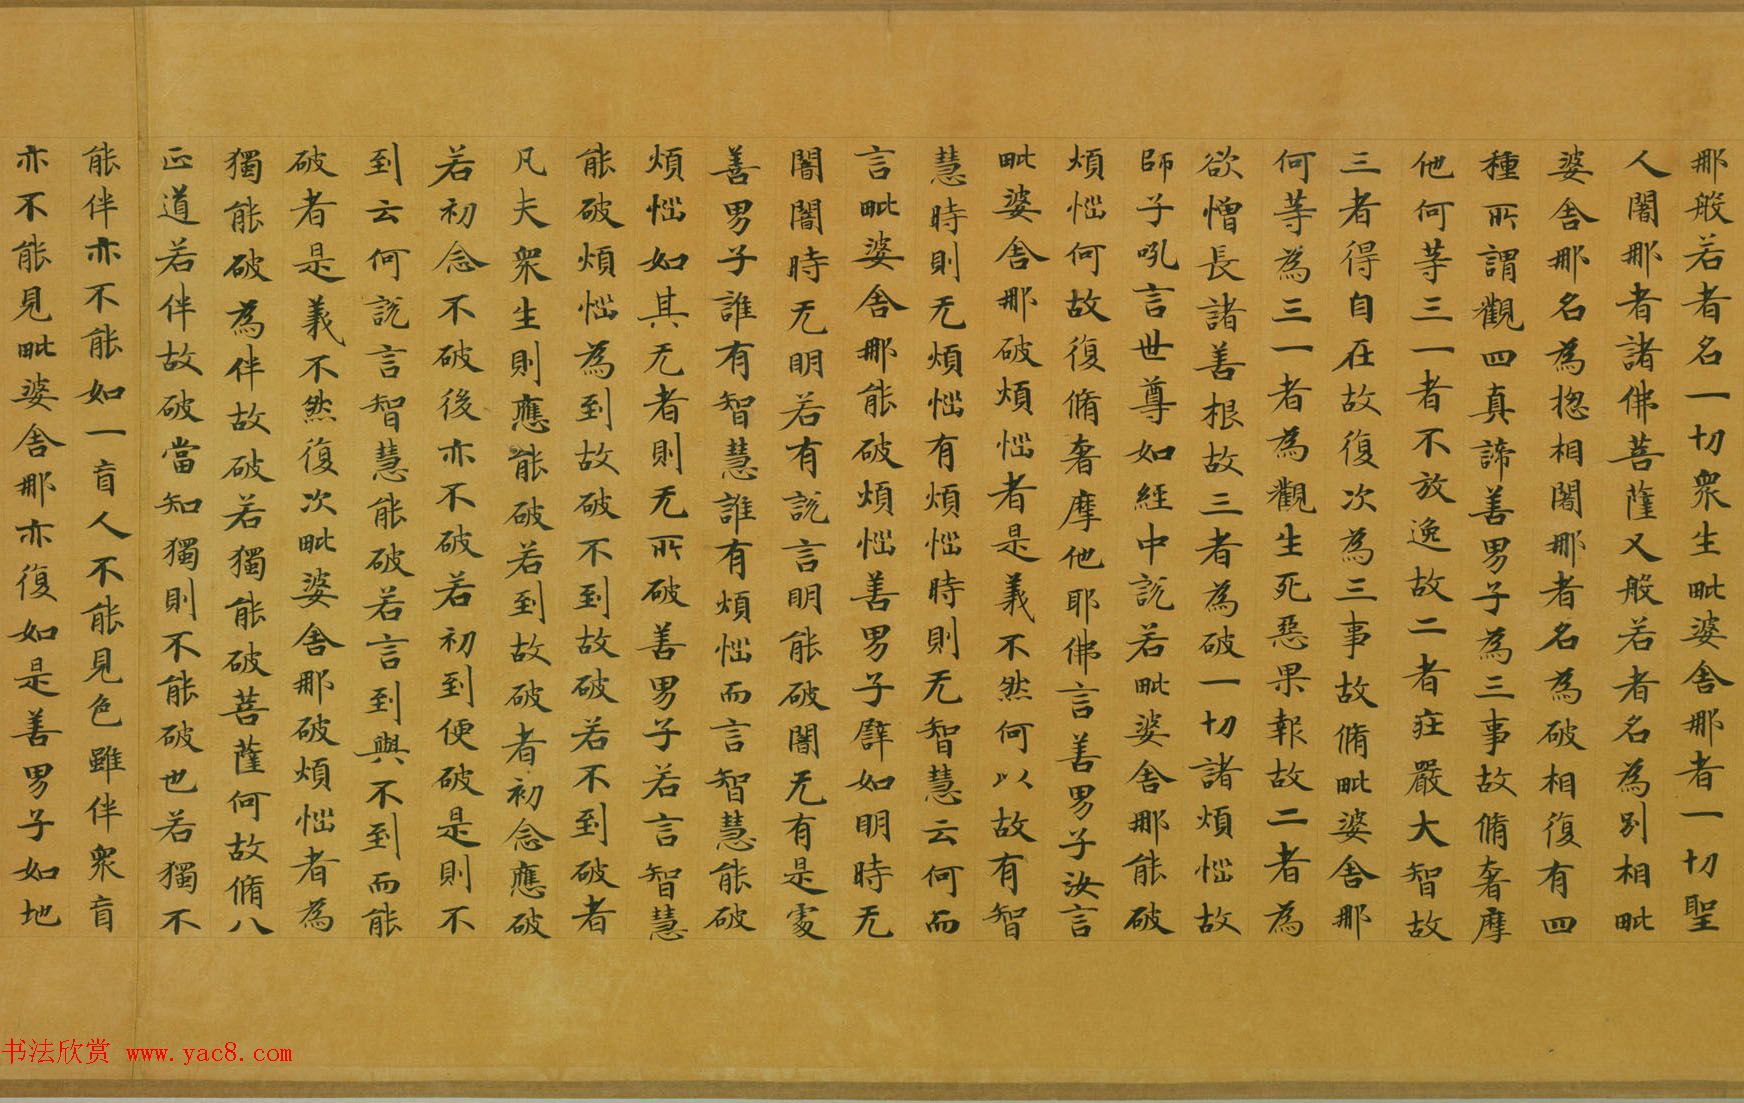 那般若者名一切衆生毗婆舍那者一切聖
人闍那者諸佛菩薩又般若者名為别相毗
婆舍那名為揔相闍那者名為破相復有四
種所謂觀四真諦善男子為三事故脩奢摩
他何等三一者不放逸故二者莊嚴大智故
三者得自在故復次為三事故脩毗婆舍那
何等為三一者為觀生死惡果報故二者為
欲憎長諸善根故三者為破一切諸煩惱故
師子吼言世尊如經中說若毗婆舍那能破
煩惱何故復脩奢摩他耶佛言善男子汝言
毗婆舍那破煩惱者是義不然何以故有智
慧時則无煩惱有煩惱時則无智慧云何而
言毗婆舍那能破煩惱善男子譬如眀時无
闇闇時无眀若有說言眀能破闇无有是處
善男子誰有智慧誰有煩惱而言智慧能破
煩惱如其无者則无所破善男子若言智慧
能破煩惱為到故破不到故破若不到破者
凡夫衆生則應能破若到故破者初念應破
若初念不破後亦不破若初到便破是則不
到云何說言智慧能破若言到與不到而能
破者是義不然復次毗婆舍那破煩惱者為
獨能破為伴故破若獨能破菩薩何故脩八
正道若伴故破當知獨則不能破也若獨不
能伴亦不能如一盲人不能見色雖伴衆盲
亦不能見毗婆舍那亦復如是善男子如地
书法欣赏 www.yac8.com